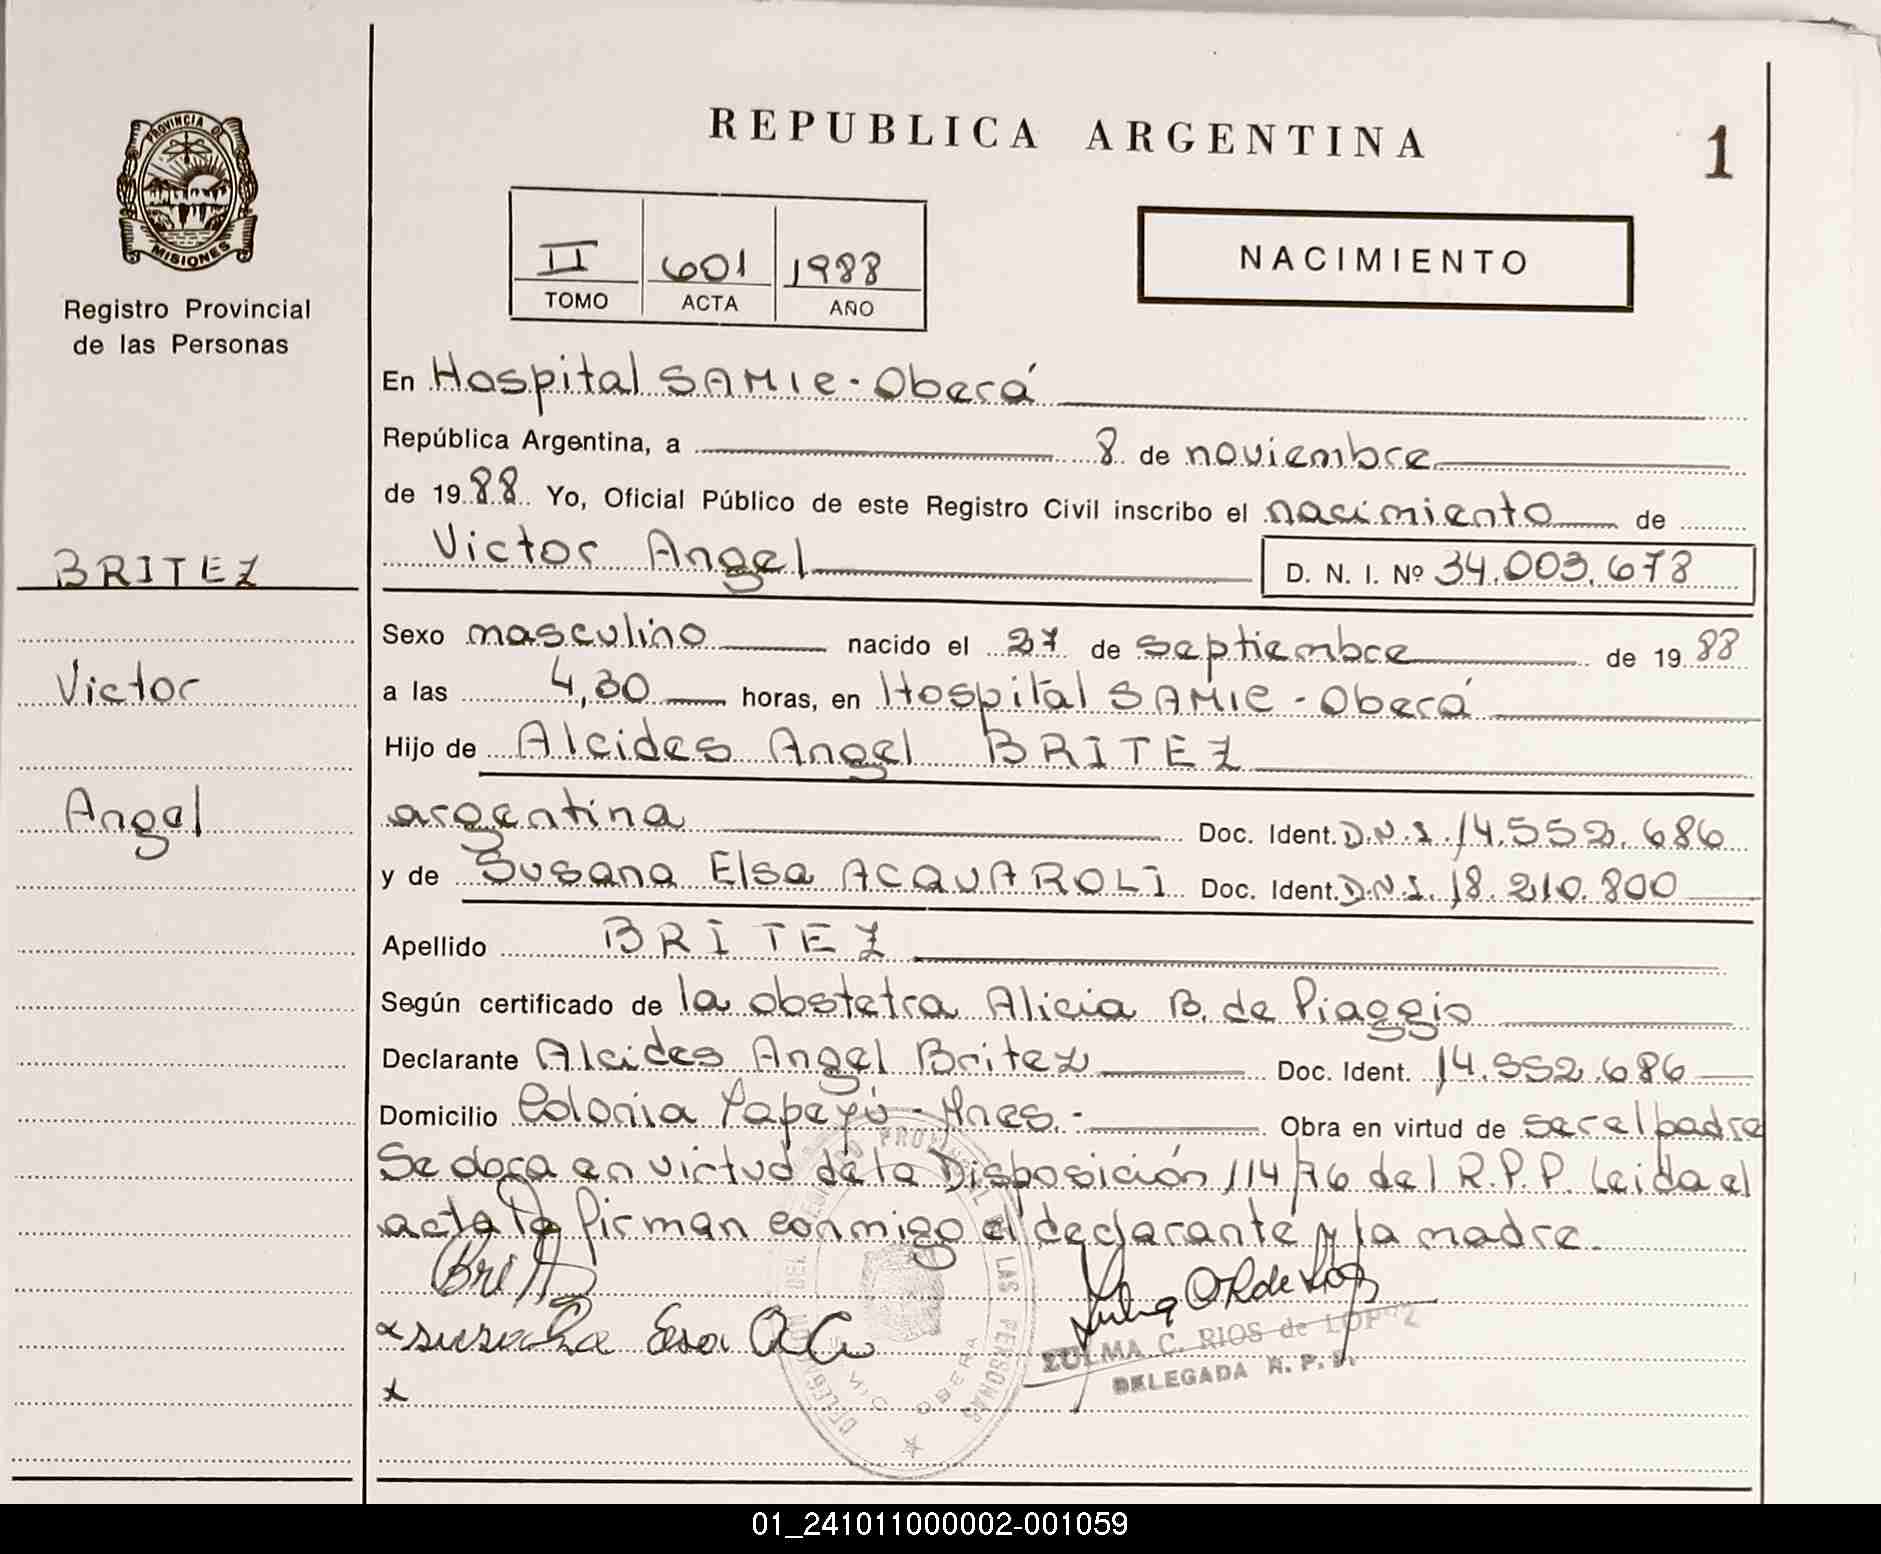 REPUBLICA ARGENTINA
1
PROVINCIA DE
MISIONES
Registro Provincial
de las Personas
II 601 1988
TOMO ACTA AÑO
NACIMIENTO
En Hospital SAMIC - Oberá
República Argentina, a 8 de noviembre
de 1988 Yo, Oficial Público de este Registro Civil inscribo el nacimiento de
Victor Angel D. N. I. Nº 34.003.678
BRITEZ
Victor
Angel
Sexo masculino nacido el 27 de septiembre de 1988
a las 4,30 horas, en Hospital SAMIC - Oberá
Hijo de Alcides Angel BRITEZ
argentina Doc. Ident. D.N.I. 14.552.686
y de Susana Elsa ACQUAROLI Doc. Ident. D.N.I. 18.210.800
Apellido BRITEZ
Según certificado de la obstetra Alicia B. de Piaggio
Declarante Alcides Angel Britez Doc. Ident. 14.552.686
Domicilio Colonia Yapeyú - Mnes.- Obra en virtud de ser el padre
Se doca en virtud de la Disposición 114/76 del R.P.P. Leida el
acta la firman conmigo el declarante y la madre.
ZULMA C. RIOS de LOPEZ
DELEGADA R. P. P.
01_241011000002-001059